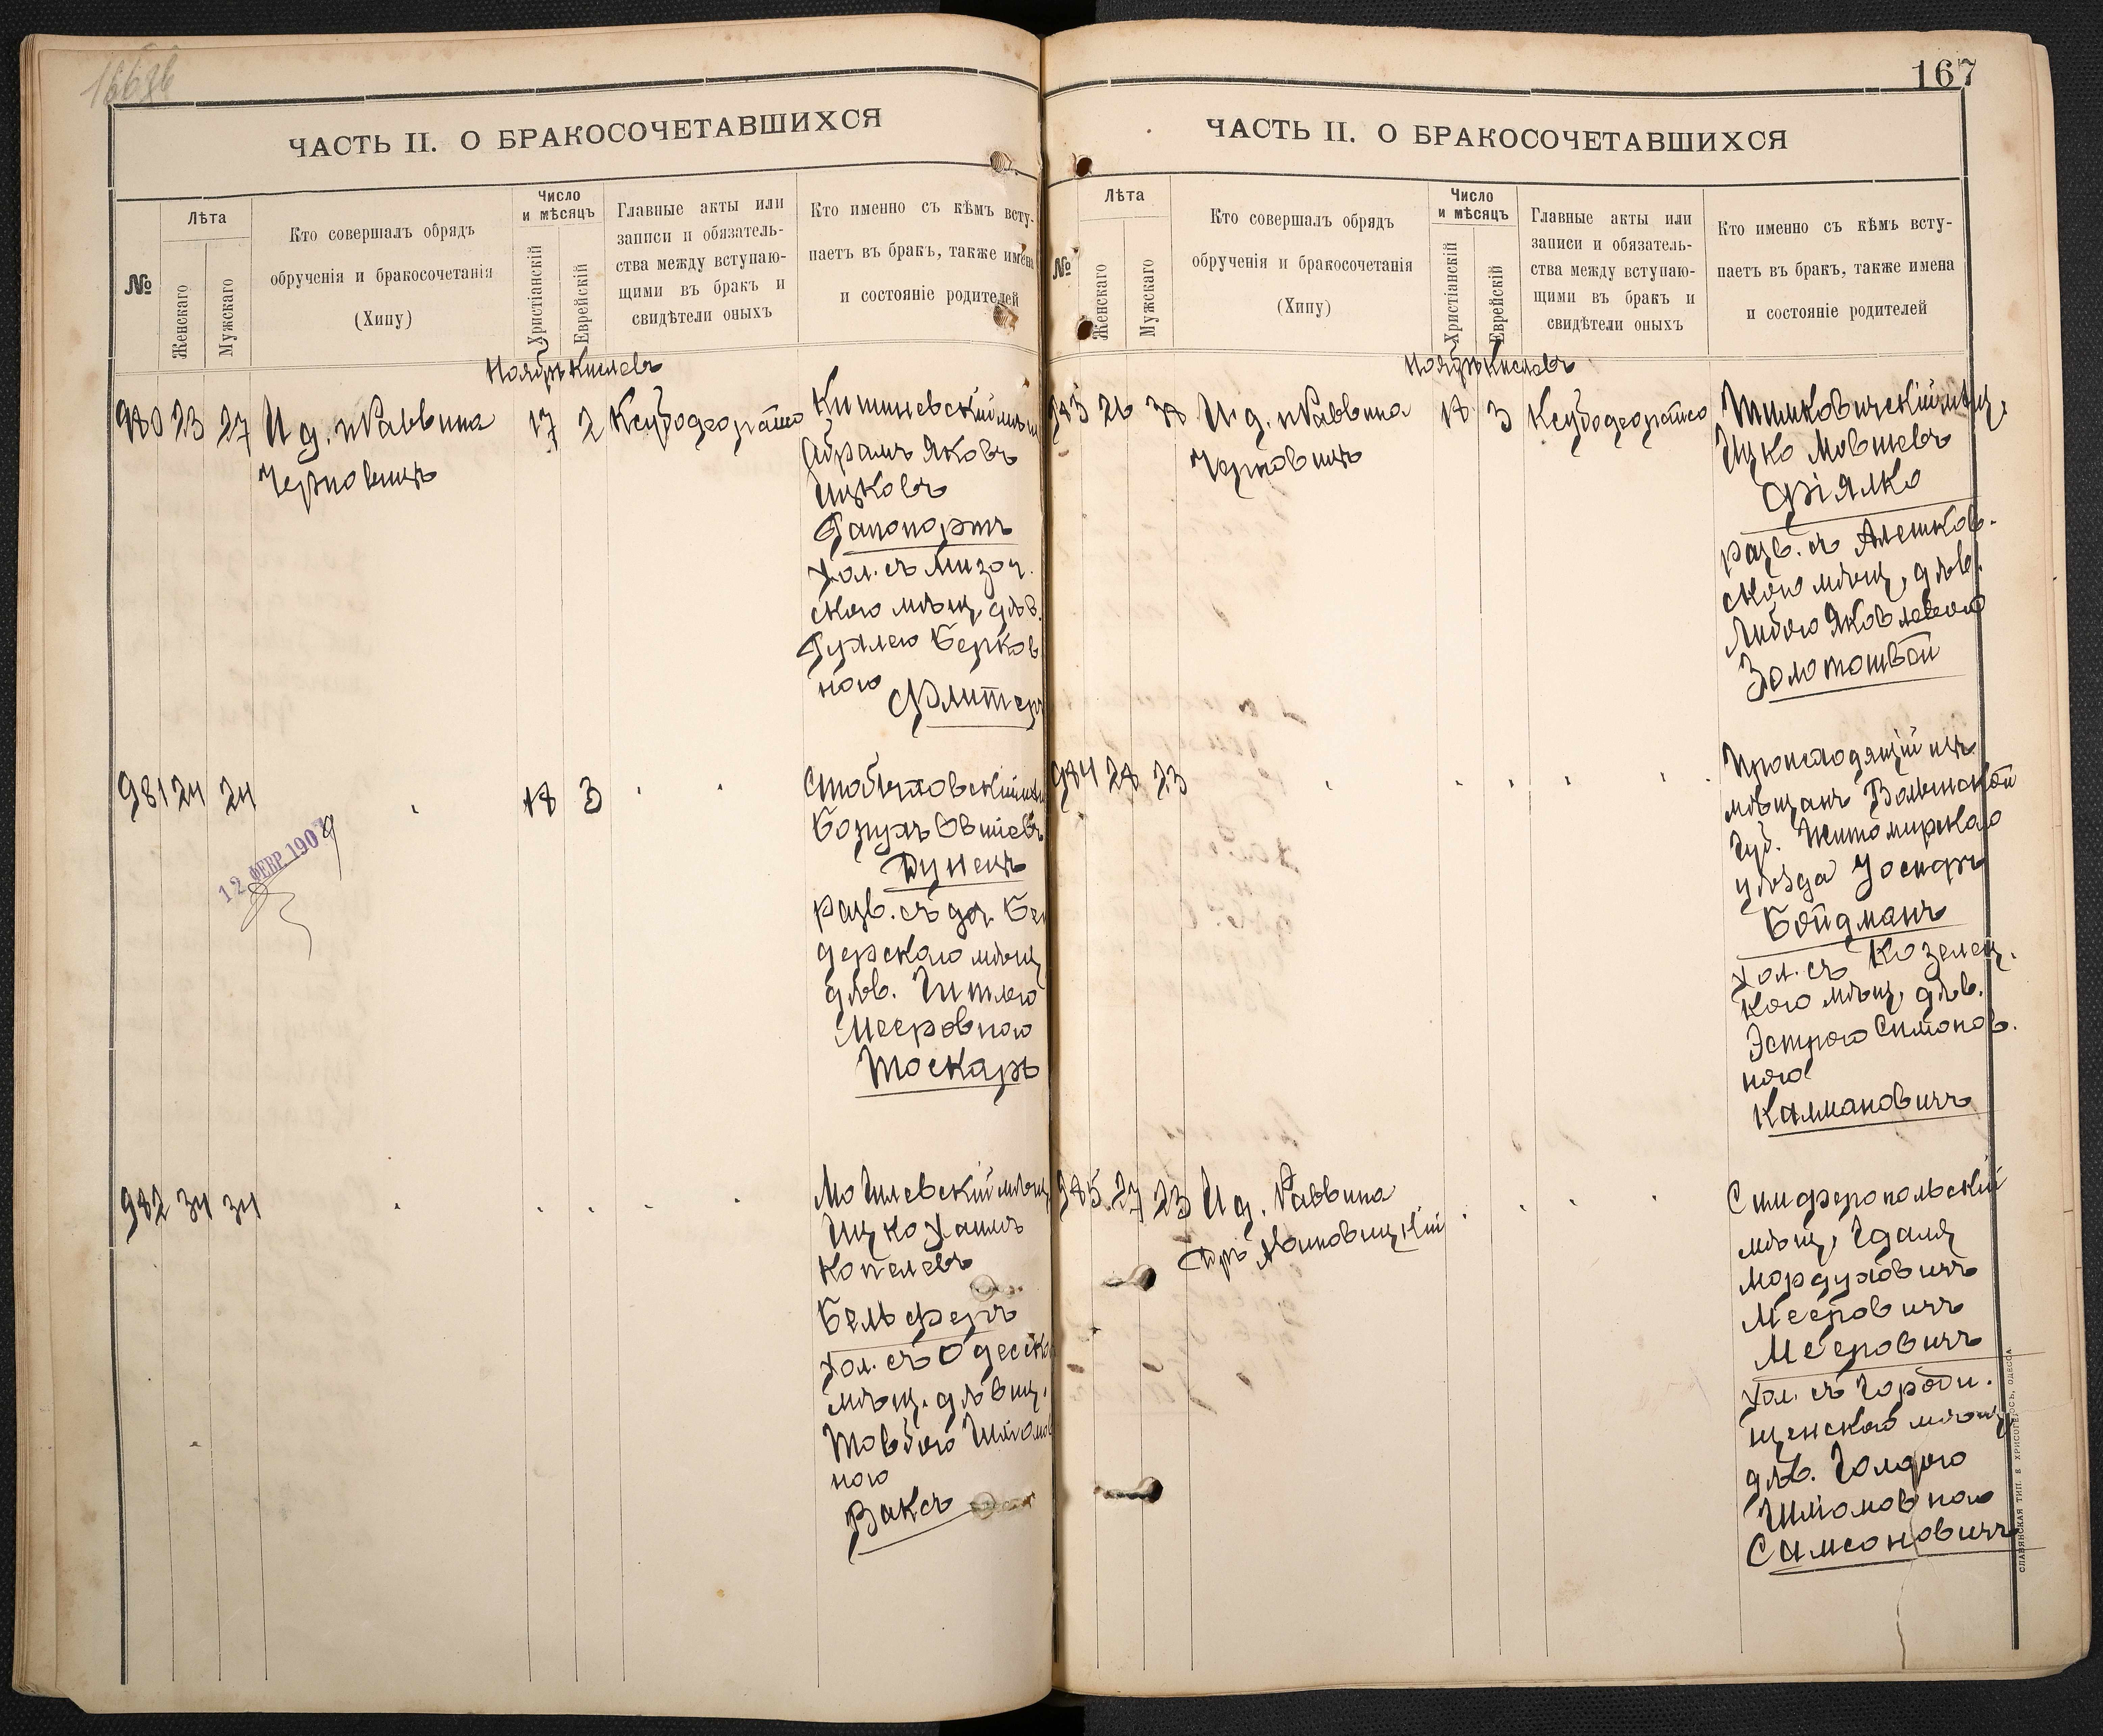 167
ЧАСТЬ II. О БРАКОСОЧЕТАВШИХСЯ
№
Лѣта
Женскаго
Мужскаго
Кто совершалъ обрядъ
обрученія и бракосочетанія
(Хипу)
Число
и мѣсяцъ
Христіанскій
Еврейскій
Главные акты или
записи и обязатель-
ства между вступаю-
щими въ бракъ и
свидѣтели оныхъ
Кто именно съ кѣмъ всту-
паетъ въ бракъ, также имена
и состояніе родителей
Ноябрь Кислевъ
980 23 27 И д. Раввина 17 2
Черновицъ
Кишиневскій мѣщ
Абрамъ Яковъ
Ицковъ
Рапопортъ
Хол. съ Мизоч.
скою мѣщ. дѣв.
Берков
ною
Флитеръ
981 24 24 18 3
12 ФЕВР. 190
Дунецъ
разв. съ Бен
дерскаго мѣщ
дѣв. Гитлею
Мееровною
Тоскарь
982 34 34
Могилевскій мѣщ
Ицко Хаимъ
Копелевъ
Бельферъ
Хол. съ Одесск
мѣщ. дѣвиц.
Товбою
ною
Ваксъ
ЧАСТЬ II. О БРАКОСОЧЕТАВШИХСЯ
№
Лѣта
Женскаго
Мужскаго
Кто совершалъ обрядъ
обрученія и бракосочетанія
(Хипу)
Число
и мѣсяцъ
Христіанскій
Еврейскій
Главные акты или
записи и обязатель-
ства между вступаю-
щими въ бракъ и
свидѣтели оныхъ
Кто именно съ кѣмъ всту-
паетъ въ бракъ, также имена
и состояніе родителей
Ноябрь Кислевъ
983 26 38 И д. Раввина 18 3
Черновицъ
Ицко Мовшевъ
Фіялко
разв. съ Алешков.
скою мѣщ. дѣв.
Либою Яковлевною
Золотошвой
984 28 23
Происходящій изъ
мѣщанъ Волынской
Губ. Житомирскаго
уѣзда
Бойдманъ
Хол. съ Козелец.
кою мѣщ. дѣв.
Эстрою Симонов.
ною
Калмановичъ
985 27 23 И д. Раввина
Симферопольскій
мѣщ. Гдаля
Мордуховичъ
Мееровичъ
Мееровичъ
Хол. съ Городи.
щенскою мѣщ
дѣв. Голдою
Шлiомовною
Самсоновичъ
СЛАВЯНСКАЯ ТИП. Е. ХРИСОГЕЛОСЪ, ОДЕССА